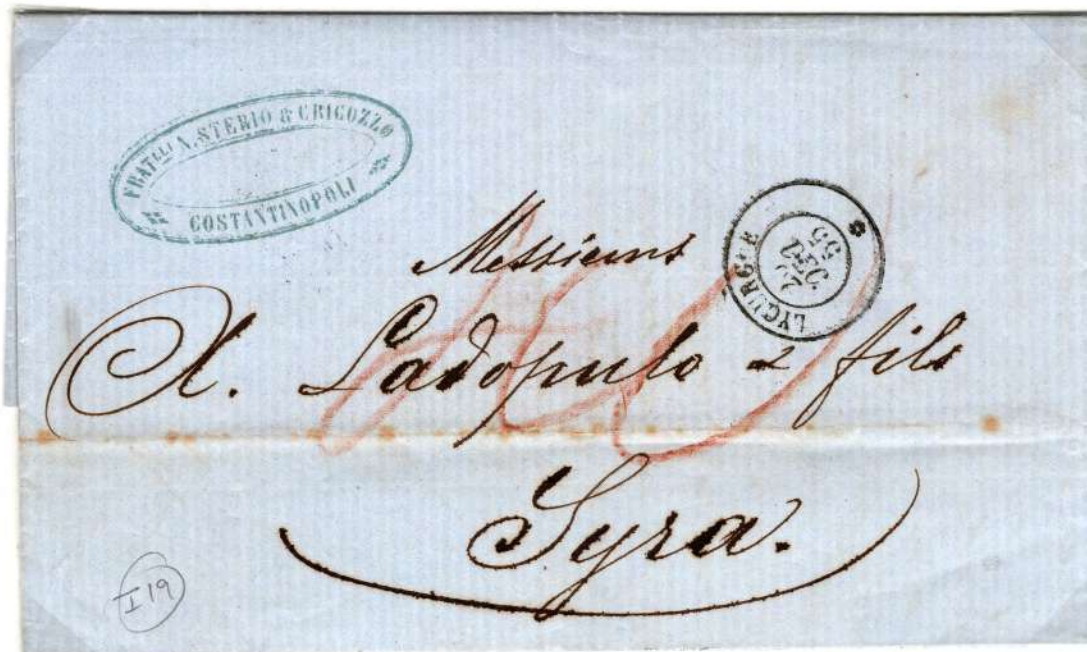 FRATELLI N. STERIO & CRICOZZO
COSTANTINOPOLI
LYCURGUE
DEC
55
Messieurs
A. Ladopulo & fils
Syra.
I 19